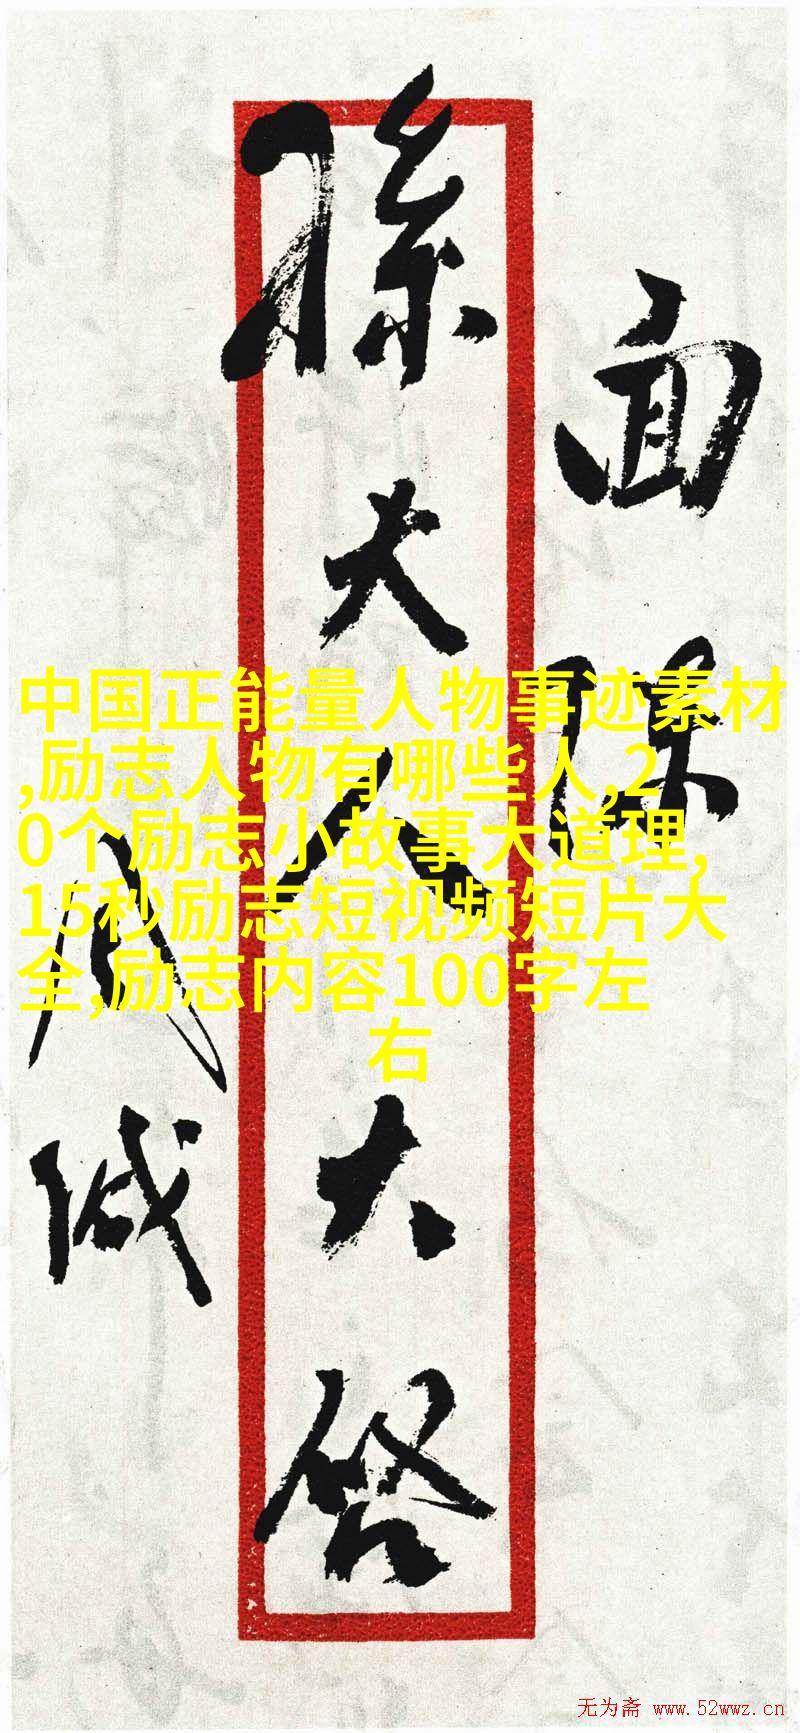 面陈
孫大人大啓
周缄
中国正能量人物事迹素材
,励志人物有哪些人,2
0个励志小故事大道理,
15秒励志短视频短片大
全,励志内容100字左
右
无为斋 www.52wwz.cn